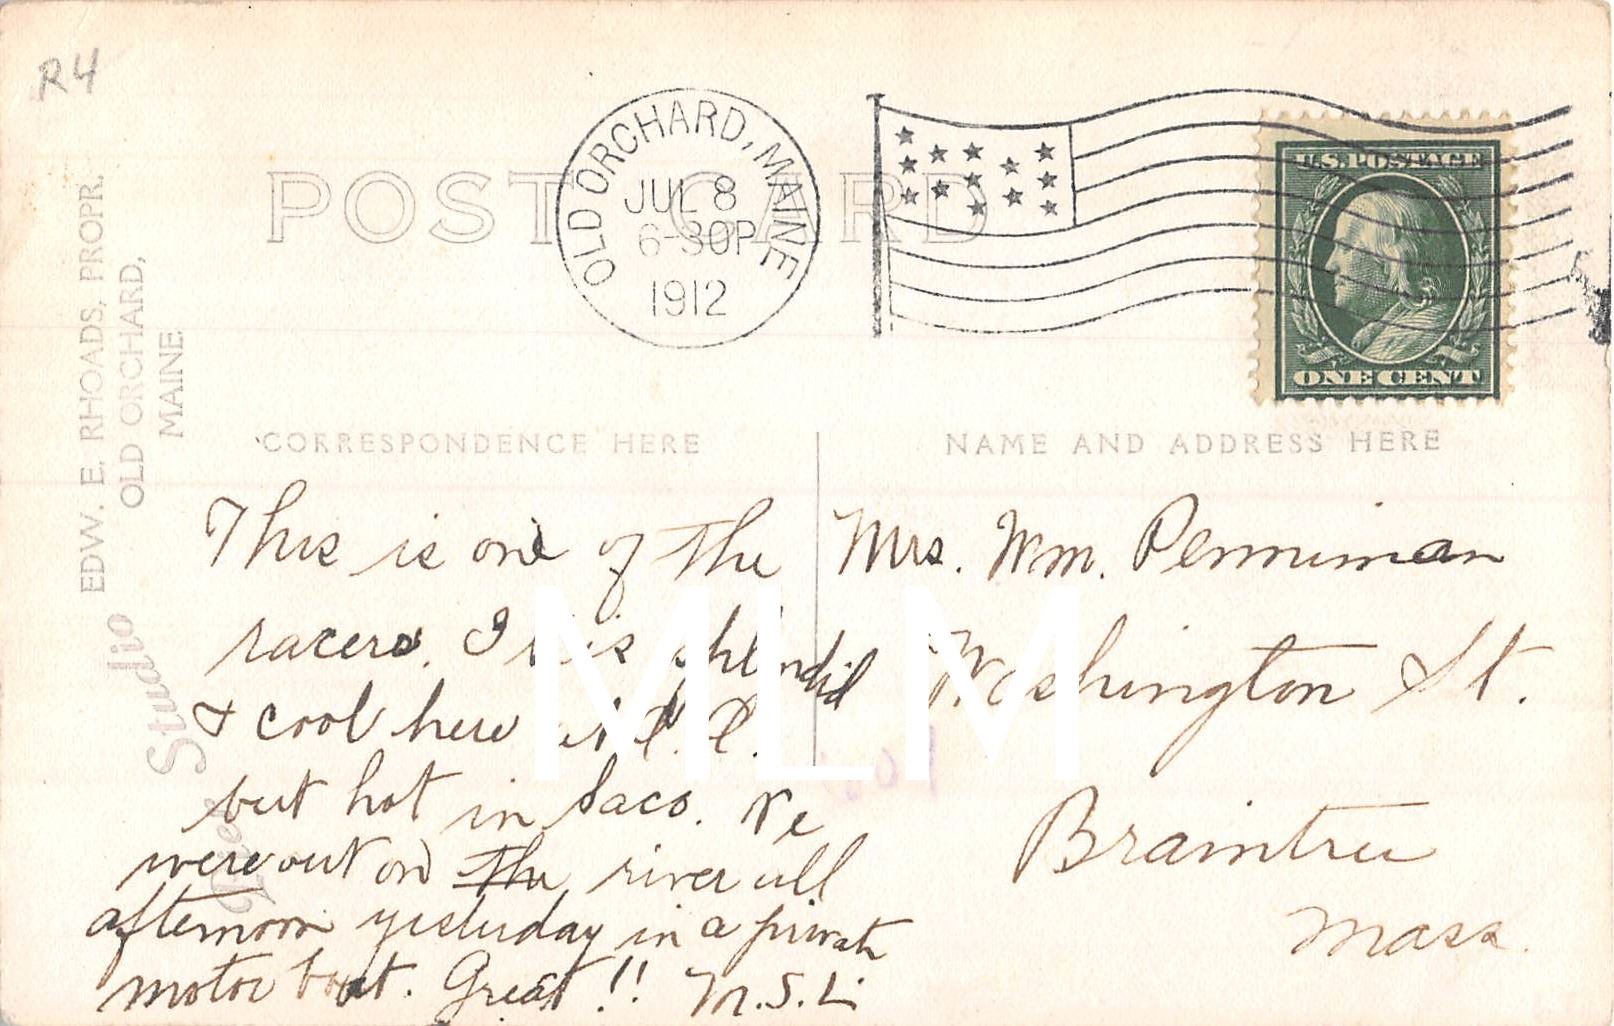 R4
POST CARD
OLD ORCHARD, MAINE
JUL 8
6-30P
1912
U.S. POSTAGE
ONE CENT
EDW. E. RHOADS, PROPR.
OLD ORCHARD,
MAINE.
Studio
CORRESPONDENCE HERE
NAME AND ADDRESS HERE
This is one of the
racers. I is splendid
& cool here
but hot in Saco. We
were out on the river all
afternoon yesterday in a private
motor boat. Great!! M.S.L.
Mrs. Wm. Penniman
Washington St.
Braintree
Mass.
MLM